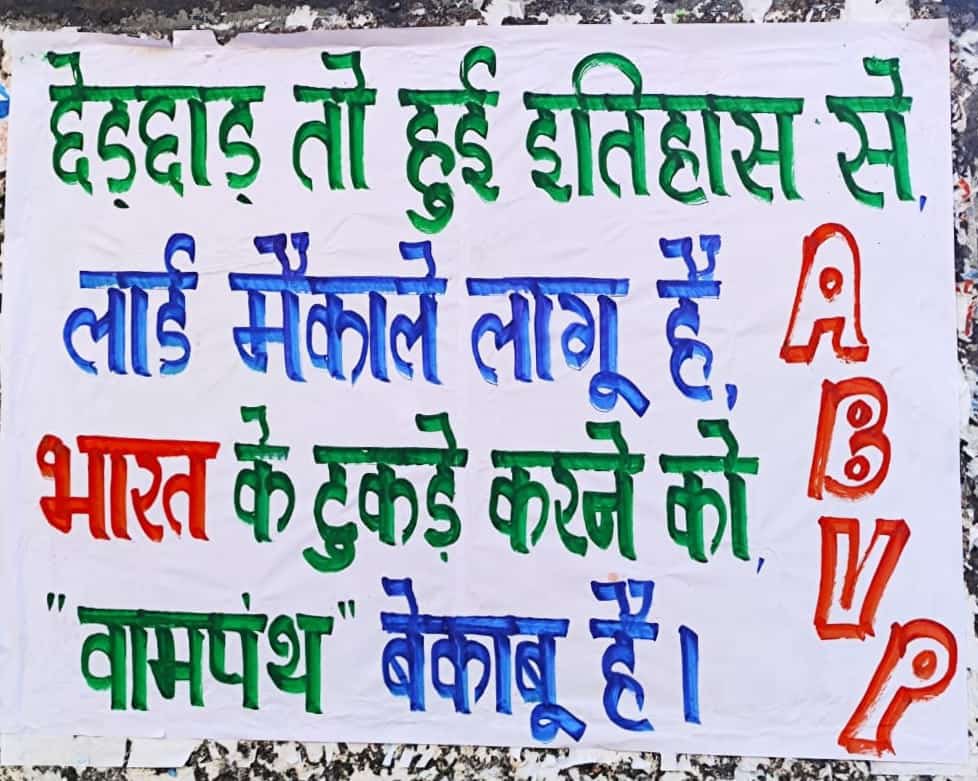 छेड़छाड़ तो हुई इतिहास से,
लार्ड मैकाले लागू है,
भारत के टुकड़े करने को,
"वामपंथ" बेकाबू है।
ABVP